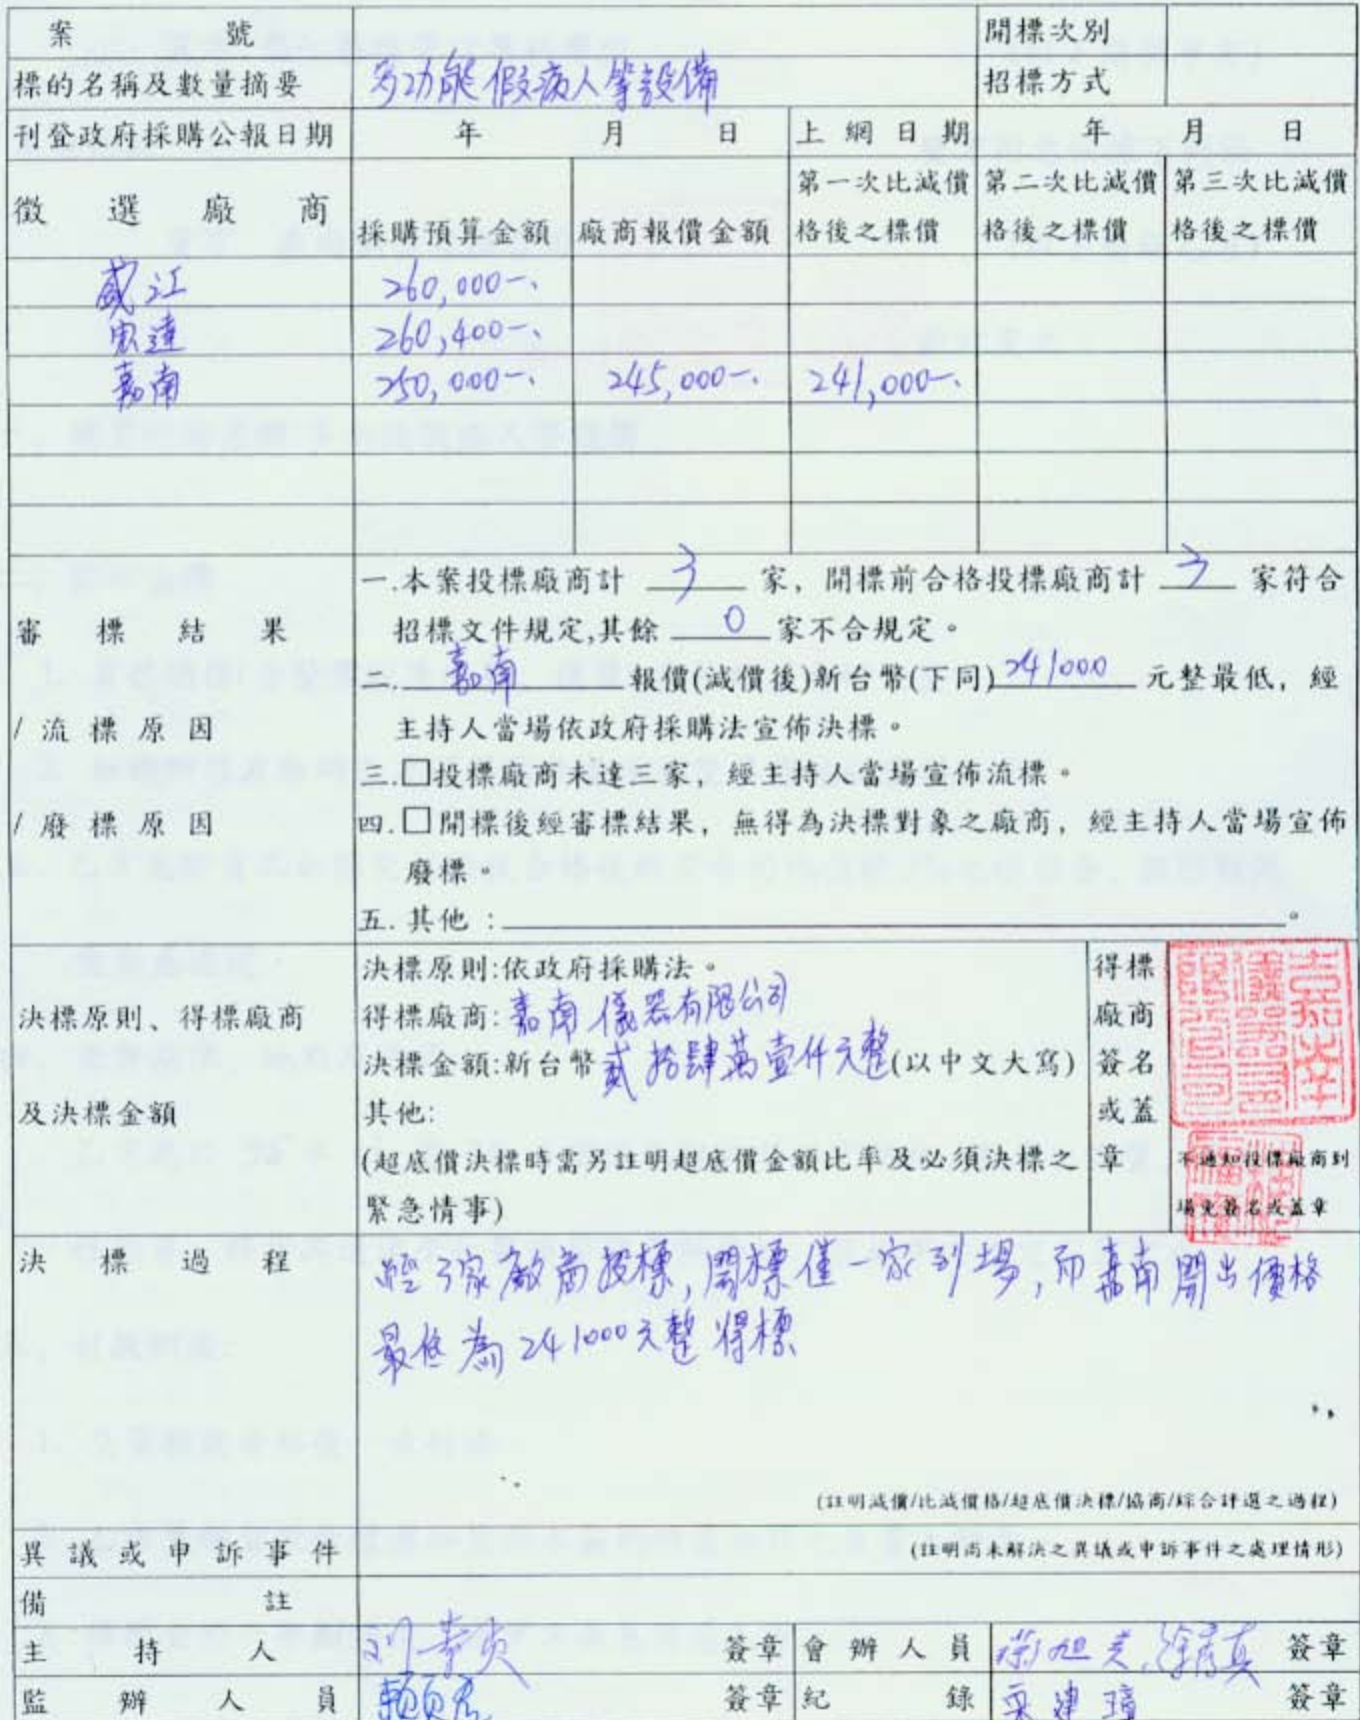 案號 開標次別
標的名稱及數量摘要 多功能假病人等設備 招標方式
刊登政府採購公報日期 年 月 日 上網日期 年 月 日
徵選廠商 採購預算金額 廠商報價金額 第一次比減價格後之標價 第二次比減價格後之標價 第三次比減價格後之標價
盛江 260,000-.
宏達 260,400-.
嘉南 250,000-. 245,000-. 241,000-.
審標結果
/流標原因
/廢標原因
一.本案投標廠商計 3 家，開標前合格投標廠商計 3 家符合
招標文件規定,其餘 0 家不合規定。
二. 嘉南 報價(減價後)新台幣(下同) 241000 元整最低，經
主持人當場依政府採購法宣佈決標。
三.□投標廠商未達三家，經主持人當場宣佈流標。
四.□開標後經審標結果，無得為決標對象之廠商，經主持人當場宣佈
廢標。
五.其他：。
決標原則、得標廠商
及決標金額
決標原則:依政府採購法。
得標廠商:嘉南儀器有限公司
決標金額:新台幣貳拾肆萬壹仟元整(以中文大寫)
其他:
(超底價決標時需另註明超底價金額比率及必須決標之
緊急情事)
得標
廠商
簽名
或蓋
章
不通知投標廠商到
場免簽名或蓋章
決標過程
經3家廠商投標,開標僅一家到場,而嘉南開出價格
最低為241000元整得標
(註明減價/比減價格/超底價決標/協商/綜合評選之過程)
異議或申訴事件 (註明尚未解決之異議或申訴事件之處理情形)
備註
主持人 簽章 會辦人員 簽章
監辦人員 簽章 紀錄 簽章